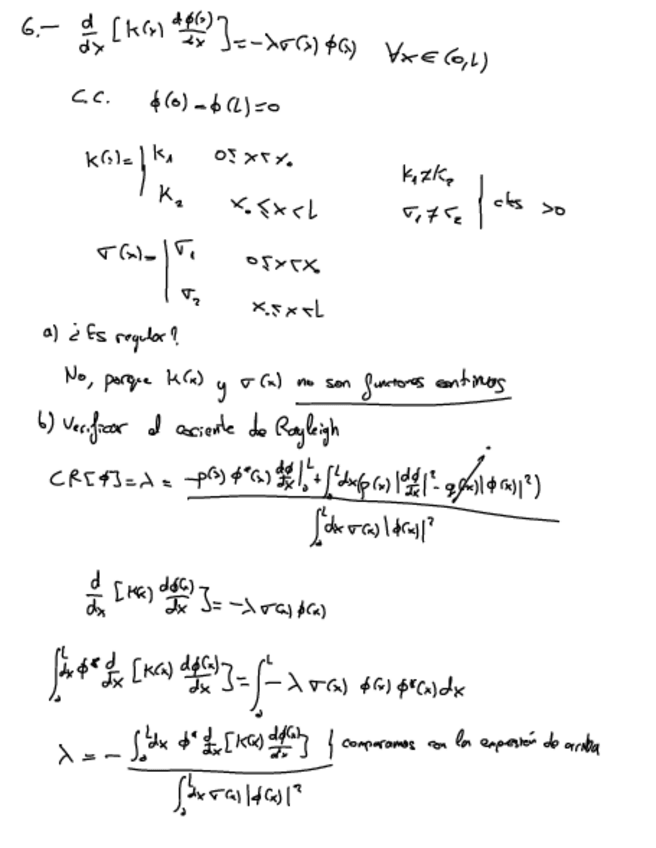 6.- d/dx [k(x) dϕ(x)/dx] = -λσ(x) ϕ(x) ∀x ∈ (0,L)
C.C. ϕ(0) = ϕ(L) = 0
k(x) = | k₁ 0 ≤ x < x₀
k₂ x₀ ≤ x < L
k₁ ≠ k₂
σ₁ ≠ σ₂ | ctes > 0
σ(x) = | σ₁ 0 ≤ x < x₀
σ₂ x₀ ≤ x < L
a) ¿Es regular?
No, porque k(x) y σ(x) no son funciones continuas
b) Verificar el cociente de Rayleigh
CR[ϕ] = λ = (-p(x) ϕ*(x) dϕ/dx |₀ᴸ + ∫₀ᴸ dx (p(x) |dϕ/dx|² - q(x) |ϕ(x)|²)) / ∫₀ᴸ dx σ(x) |ϕ(x)|²
d/dx [k(x) dϕ(x)/dx] = -λ σ(x) ϕ(x)
∫₀ᴸ dx ϕ* d/dx [k(x) dϕ(x)/dx] = ∫₀ᴸ -λ σ(x) ϕ(x) ϕ*(x) dx
λ = - ∫₀ᴸ dx ϕ* d/dx [k(x) dϕ(x)/dx] / ∫₀ᴸ dx σ(x) |ϕ(x)|² } comparamos con la expresión de arriba